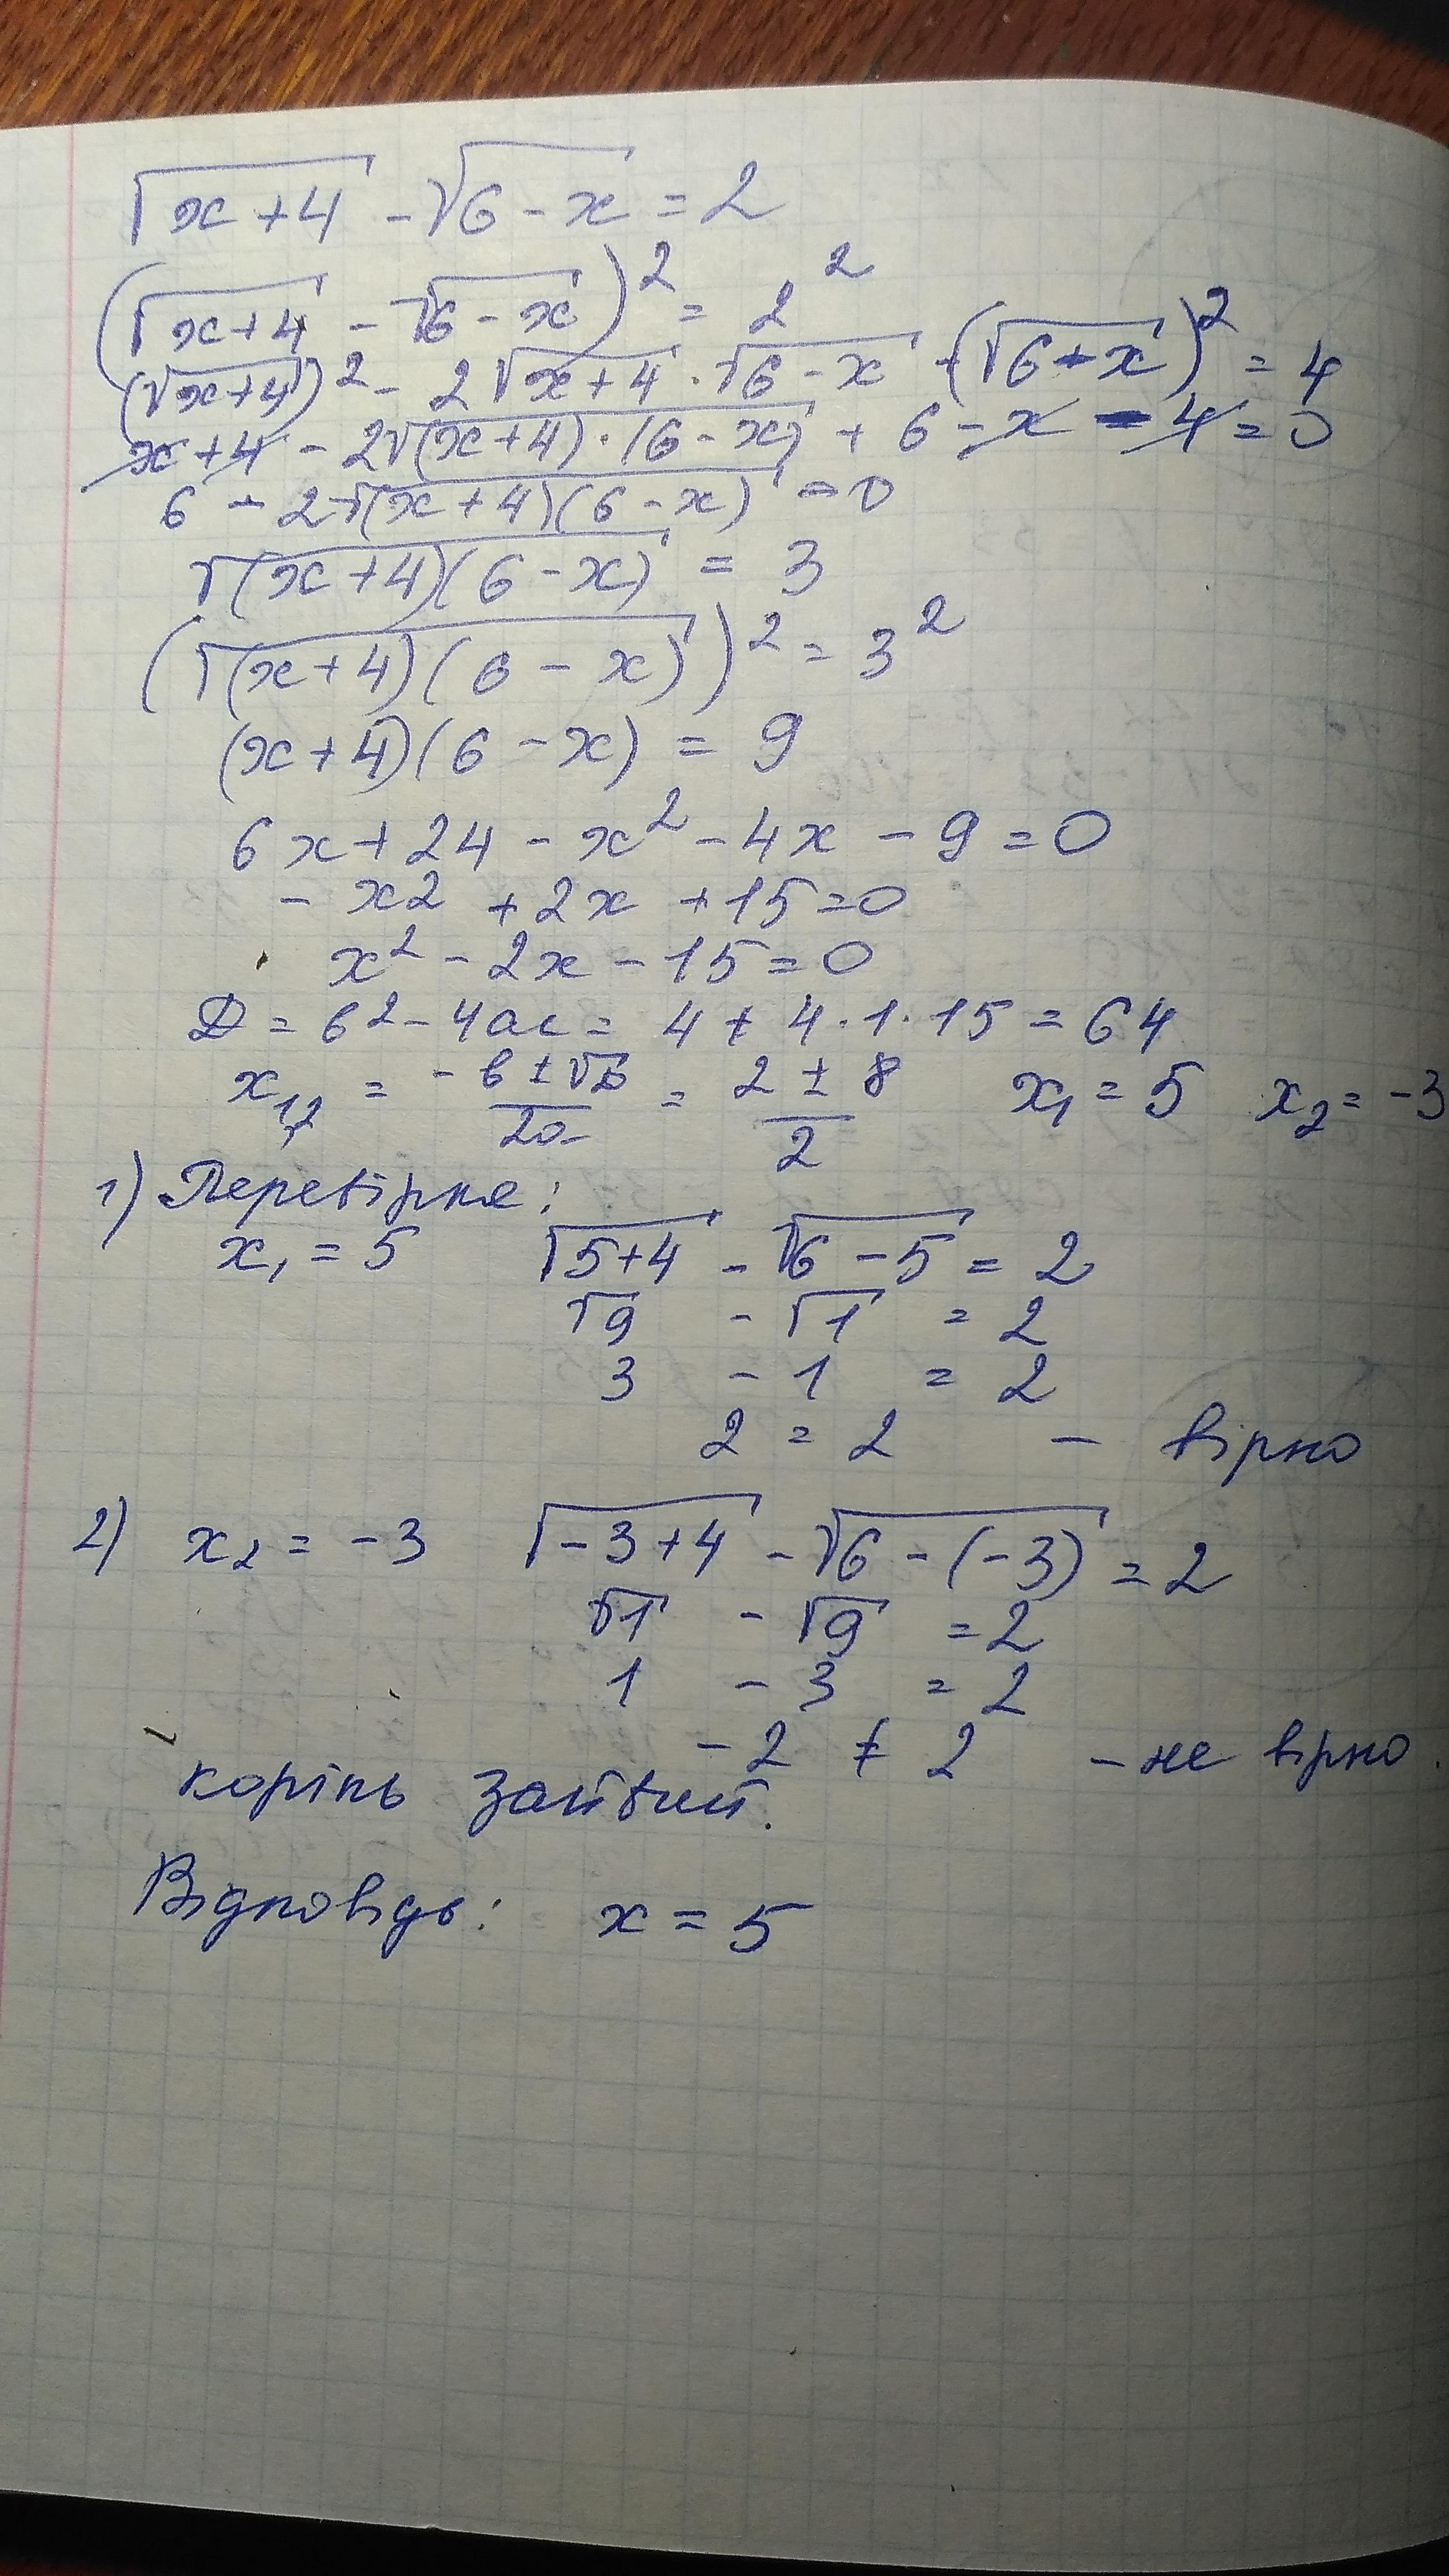 √(x+4) - √(6-x) = 2
(√(x+4) - √(6-x))² = 2²
(√(x+4))² - 2√(x+4) · √(6-x) + (√(6-x))² = 4
x+4 - 2√((x+4)·(6-x)) + 6 - x - 4 = 0
6 - 2√((x+4)(6-x)) = 0
√((x+4)(6-x)) = 3
(√((x+4)(6-x)))² = 3²
(x+4)(6-x) = 9
6x + 24 - x² - 4x - 9 = 0
- x2 + 2x + 15 = 0
x² - 2x - 15 = 0
D = b² - 4ac = 4 + 4·1·15 = 64
x₁,₂ = (-b ± √D)/2a = (2 ± 8)/2 x₁ = 5 x₂ = -3
1) Перевірка:
x₁ = 5 √(5+4) - √(6-5) = 2
√9 - √1 = 2
3 - 1 = 2
2 = 2 - вірно
2) x₂ = -3 √(-3+4) - √(6-(-3)) = 2
√1 - √9 = 2
1 - 3 = 2
-2 ≠ 2 - не вірно.
корінь зайвий.
Відповідь: x = 5